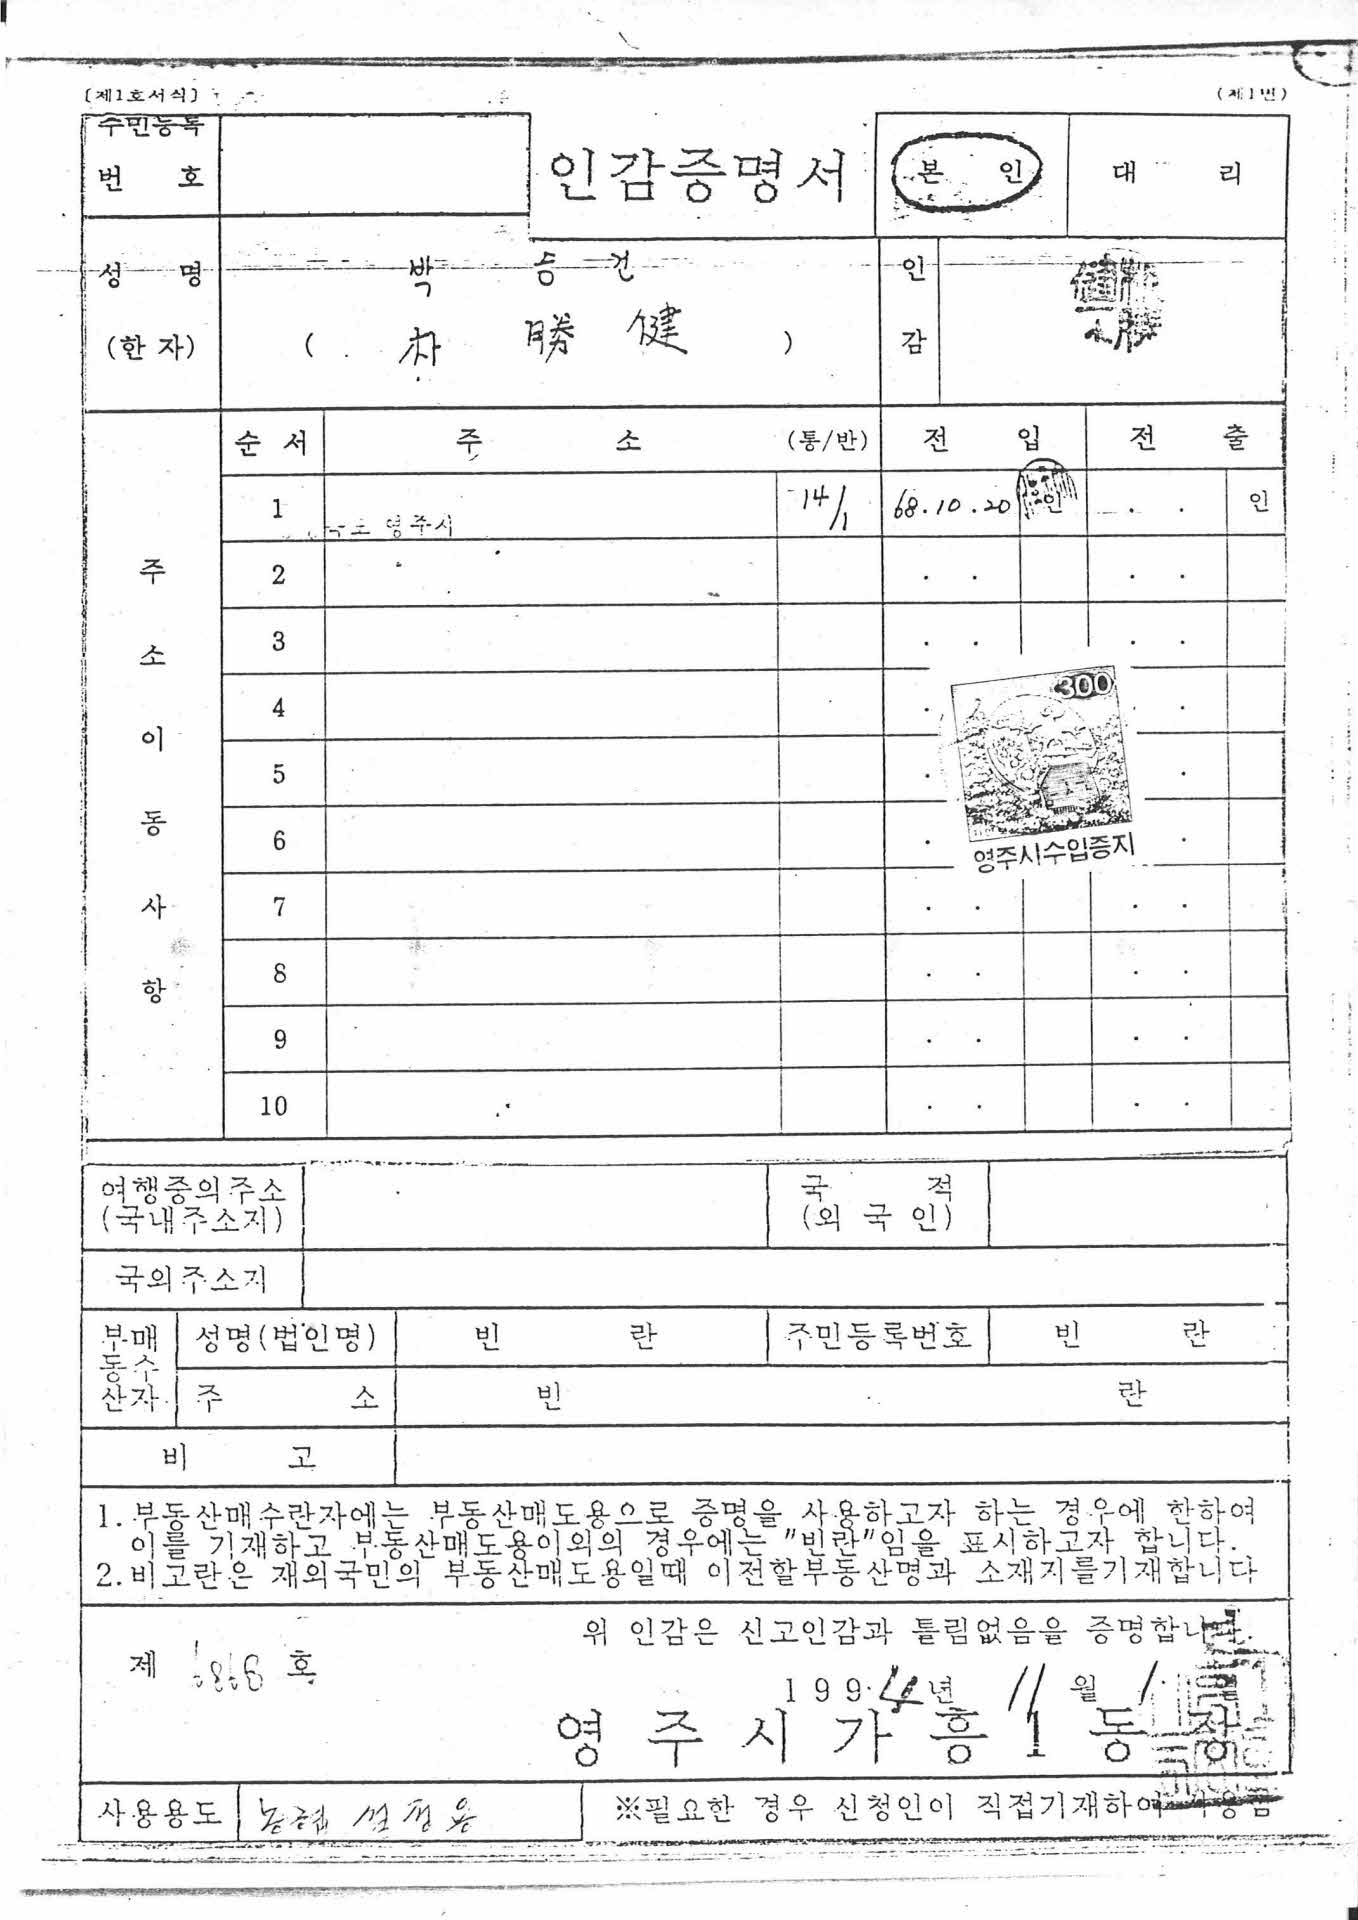 [제1호서식]
(제1번)
주민등록
번 호
인감증명서
본 인
대 리
성 명
박 승 건
인
(한 자)
( 朴 勝 健 )
감
순 서
주 소
(통/반)
전 입
전 출
주 소 이 동 사 항
1
영주시
14/1
68.10.20
인
. .
인
2
. .
. .
3
. .
. .
4
300
5
6
영주시수입증지
7
. .
. .
8
. .
. .
9
. .
. .
10
. .
. .
여행증의주소
(국내주소지)
국 적
(외 국 인)
국외주소지
부매
동수
산자
성명(법인명)
빈 란
주민등록번호
빈 란
주 소
빈 란
비 고
1. 부동산매수란자에는 부동산매도용으로 증명을 사용하고자 하는 경우에 한하여
이를 기재하고 부동산매도용이외의 경우에는 "빈란"임을 표시하고자 합니다.
2. 비고란은 재외국민의 부동산매도용일때 이전할부동산명과 소재지를기재합니다
위 인감은 신고인감과 틀림없음을 증명합니다.
제 호
1994년 11월 1일
영 주 시 가 흥 1 동 장
사용용도
※필요한 경우 신청인이 직접기재하여 사용함